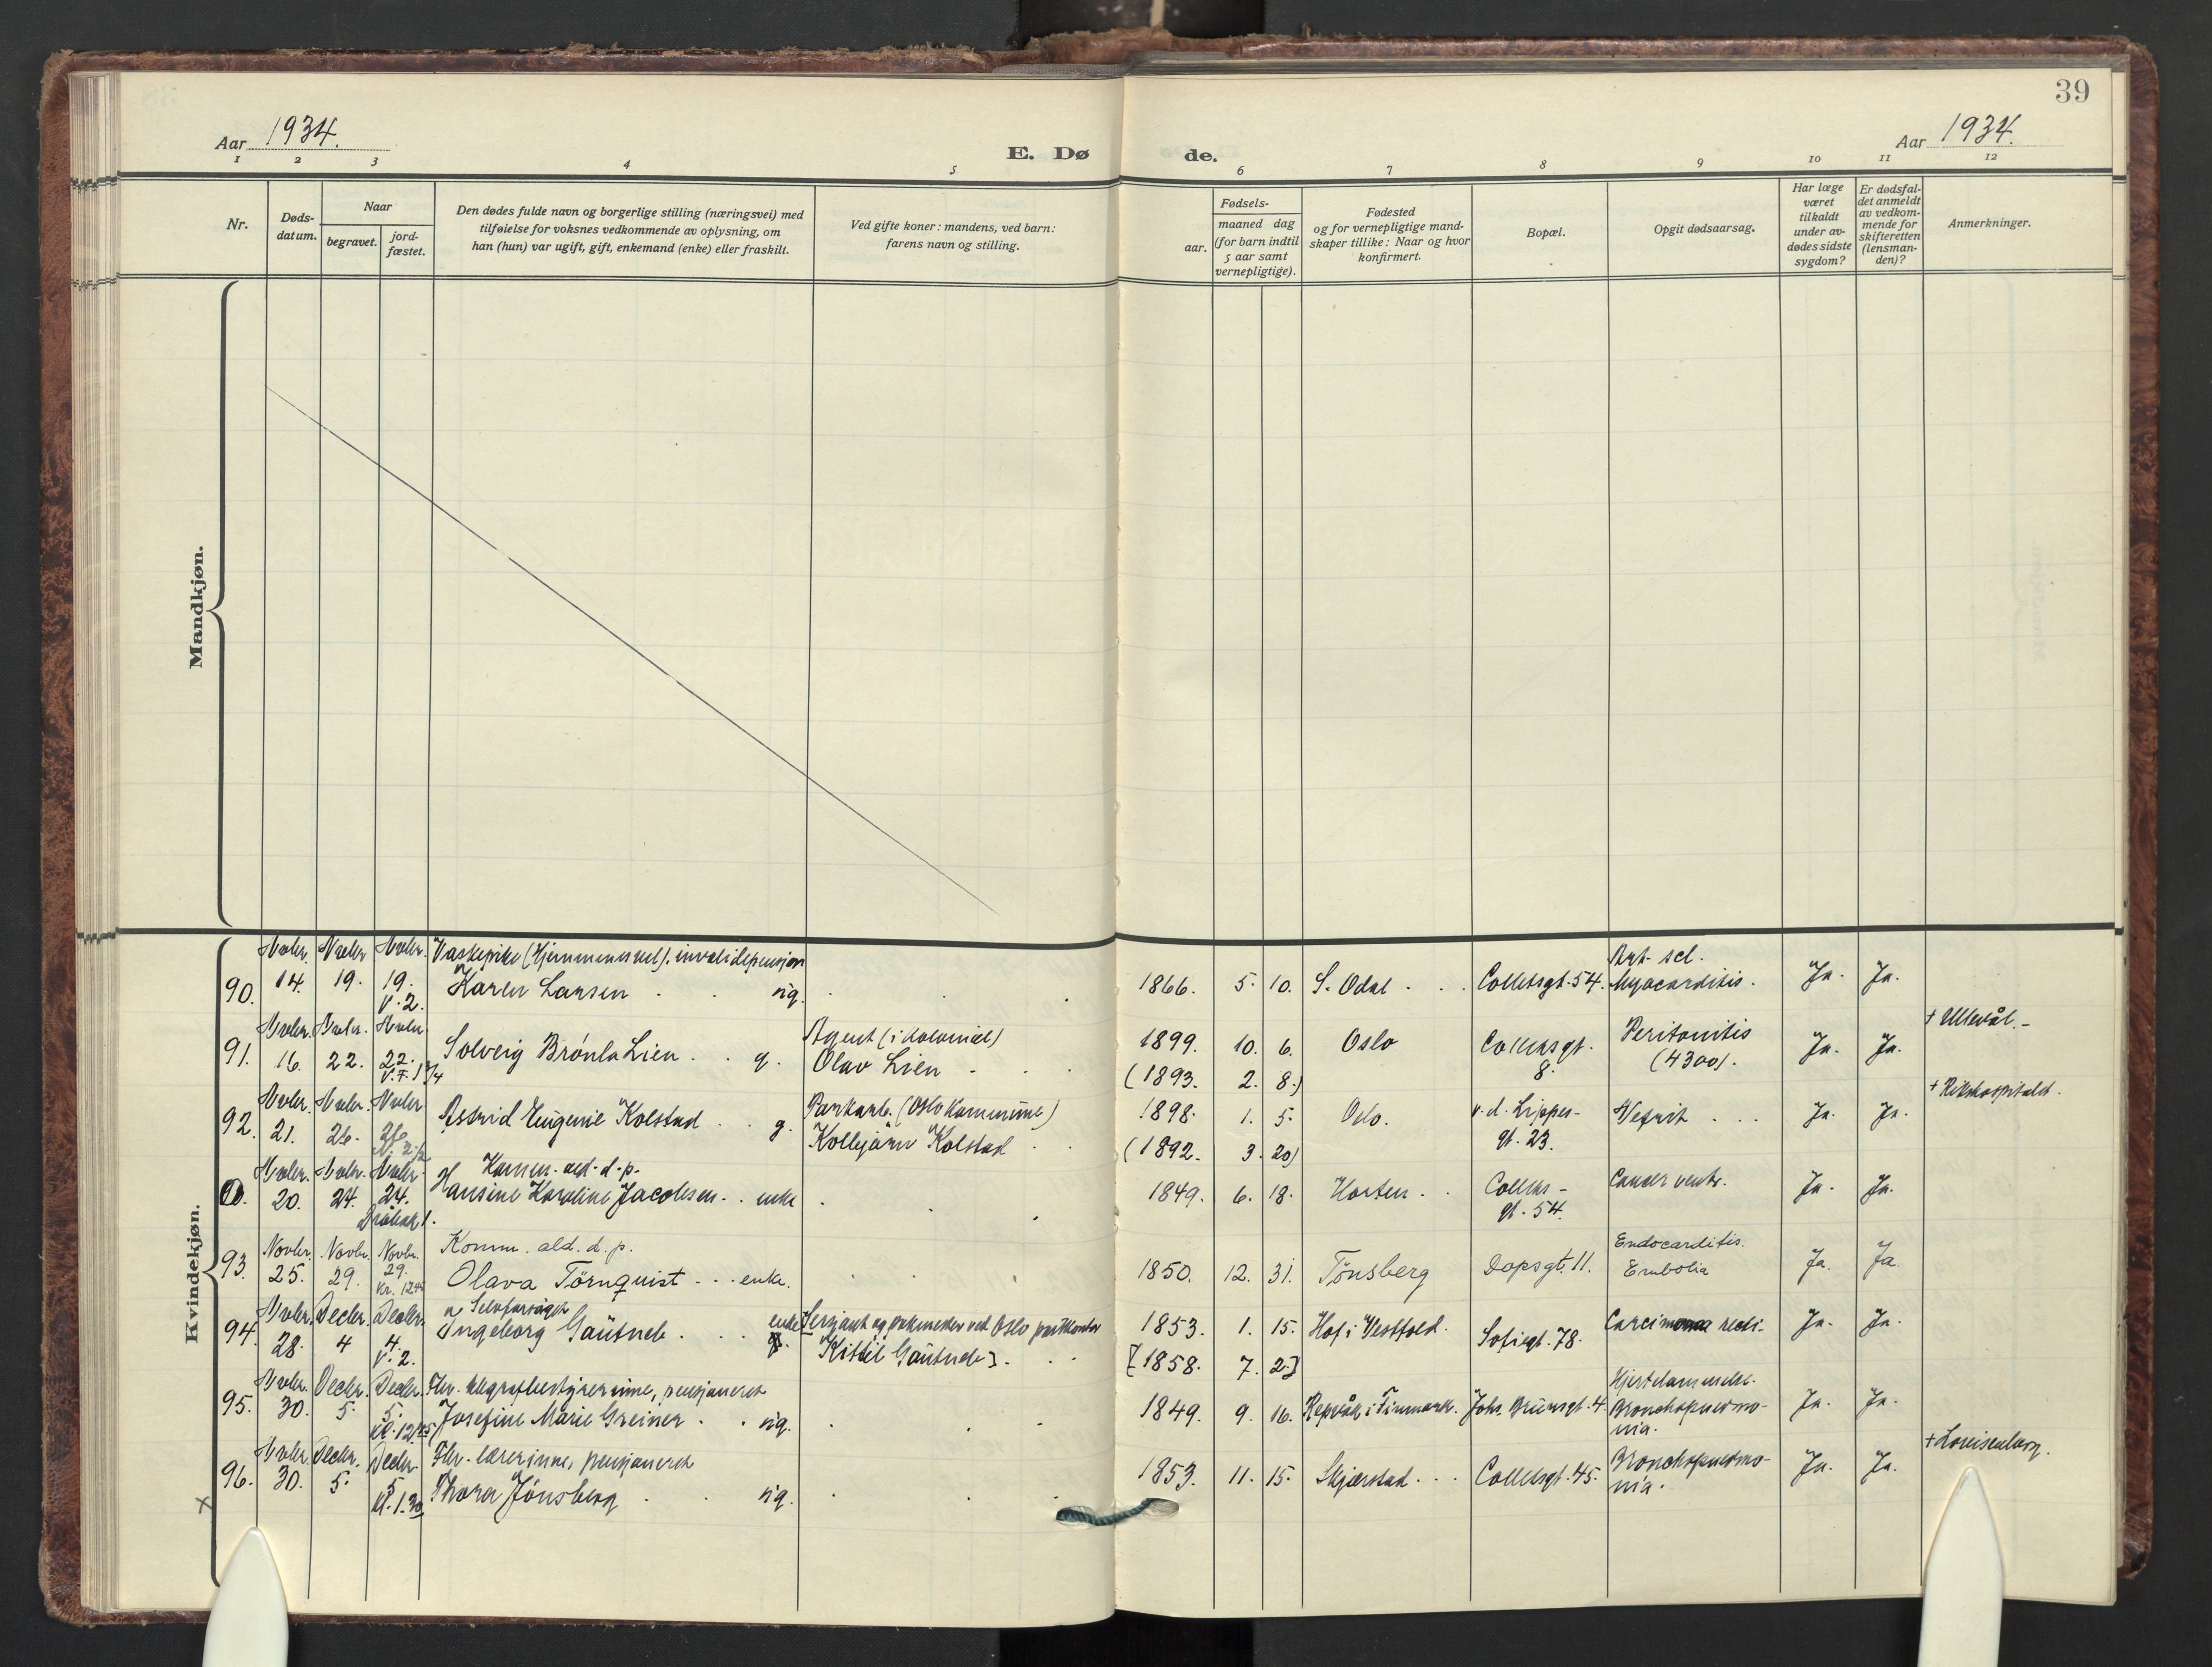 39
Aar 1934.
E. Dø
de.
Aar 1934.
1 2 3 4 5 6 7 8 9 10 11 12
Nr.
Døds-
datum.
Naar
begravet.
jord-
fæstet.
Den dødes fulde navn og borgerlige stilling (næringsvei) med
tilføielse for voksnes vedkommende av oplysning, om
han (hun) var ugift, gift, enkemand (enke) eller fraskilt.
Ved gifte koner: mandens, ved barn:
farens navn og stilling.
Fødsels-
aar.
maaned dag
(for barn indtil
5 aar samt
vernepligtige).
Fødested
og for vernepligtige mand-
skaper tillike: Naar og hvor
konfirmert.
Bopæl.
Opgit dødsaarsag.
Har læge
været
tilkaldt
under av-
dødes sidste
sygdom?
Er dødsfal-
det anmeldt
av vedkom-
mende for
skifteretten
(lensman-
den)?
Anmerkninger.
Mandkjøn.
Kvindekjøn.
Novbr. Novbr. Novbr. Vaskepike (Hjemmenssel). invalidepensjon Art. scl.
90. 14. 19. 19. Karen Larsen . . ug. 1866. 5. 10. S. Odal . . Colletsgt. 54. Myocarditis. Ja. Ja.
V. 2.
Novbr. Novbr. Novbr. Agent (i kolonial) + Ullevål.
91. 16. 22. 22. Solveig Brónla Lien . . g. Olav Lien 1899. 10. 6. Oslo Colletsgt. 8. Peritonitis (4300). Ja. Ja.
(1893. 2. 8.)
Novbr. Novbr. Novbr. Parkarb. (Oslo Kommune) + Rikshospitalet.
92. 21. 26. 26. Astrid Eugenie Kolstad . . g. Kolbjørn Kolstad 1898. 1. 5. Oslo. v. d. Lippes- gt. 23. Nefrit . . . Ja. Ja.
(1892. 3. 20)
Novbr. Novbr. Novbr. Komm. ald. d. p.
20. 24. 24. Hansine Karoline Jacobsen . . enke 1849. 6. 18. Horten . . Collets- gt. 54. Cancer ventr. Ja. Ja.
Drøbak
Novbr. Novbr. Novbr. Komm. ald. d. p. Endocarditis.
93. 25. 29. 29. Olava Törnquist . . . enke. 1850. 12. 31. Tønsberg Dopsgt. 11. Embolia Ja. Ja
Kr. 12 45
Novbr. Decbr. Decbr. Selvforsørget enke [Sersjant og pakmester ved Oslo postkontor
94. 28. 4 4. Ingeborg Gautneb . . . Kittil Gautneb] 1853. 1. 15. Hof i Vestfold. Sofiegt. 78. Carcinoma recti. Ja. Ja.
V. 2. [1858. 7. 2.]
Novbr. Decbr. Decbr. Fhv. telegrafbestyrerinne, pensjonert Hjertelammelse.
95. 30. 5. 5. Josefine Marie Greiner . . ug. 1849. 9. 16. Repvåg i Finmark. Johs. Bruunsgt. 4. Bronchopneumo- nia. Ja. Ja.
Novbr. Decbr. Decbr. Fhv. lærerinne, pensjonert + Lovisenberg.
96. 30. 5. 5 Thora Jönsberg . . ug. 1853. 11. 15. Skjærstad . . . Colletsgt. 45. Bronchopneumo- nia. Ja. Ja.
kl. 1.30